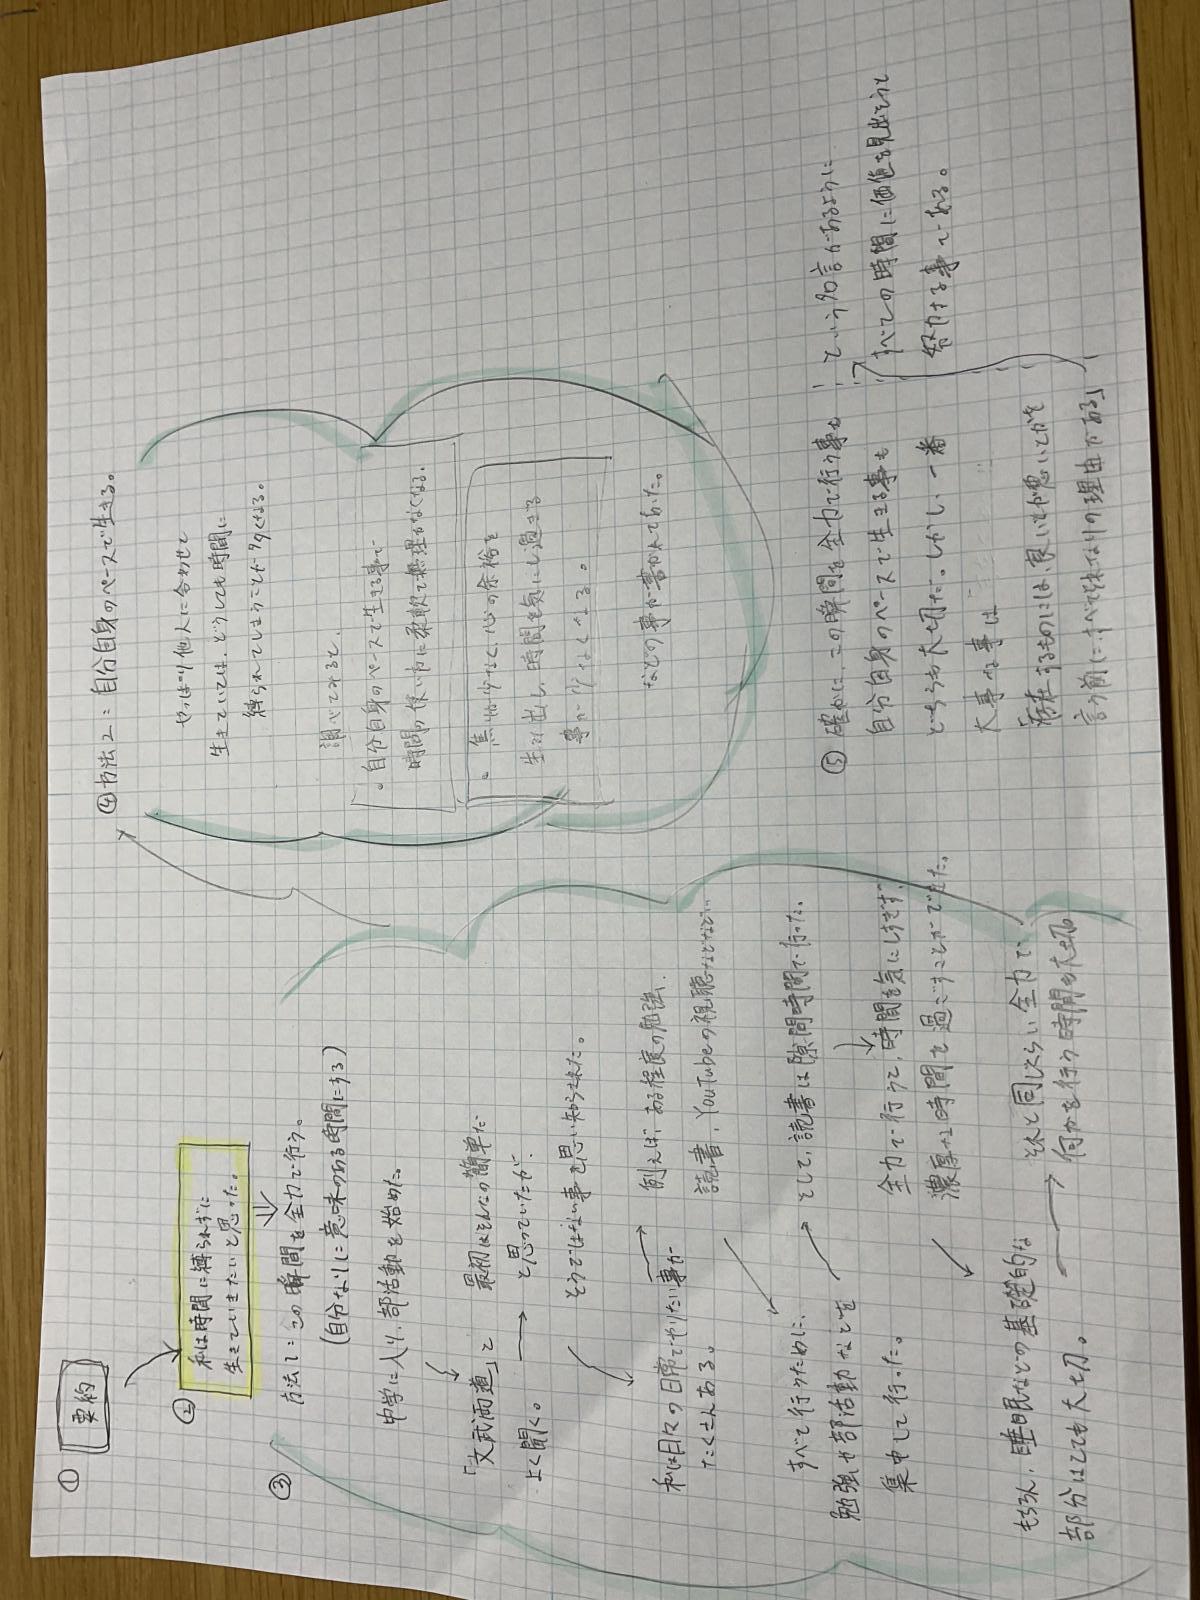 ①
要約
②
私は時間に縛られずに
生きていきたいと思った。
③
方法1：この瞬間を全力で行う。
(自分なりに意味のある時間にする)
中学に入り、部活動を始めた。
「文武両道」と
よく聞く。
最初はそんなの簡単だ
と思っていたが、
そうではない事を思い知らされた。
私は日々の日常でやりたい事が
たくさんある。
例えば、ある程度の勉強、
読書、YouTubeの視聴などなど…
すべて行うために、
勉強や部活動などを
集中して行った。
そして、読書は隙間時間で行った。
全力で行うて、時間を気にしすぎず、
濃厚な時間を過ごすことができた。
もちろん、睡眠などの基礎的な
部分はとても大切。
それと同じくらい全力で、
何かを行う時間も大切
④方法2：自分自身のペースで生きる。
やっぱり他人に合わせて
生きていては、どうしても時間に
縛られてしまうことが多くなる。
調べてみると、
・自分自身のペースで生きる事で
時間の使い方に柔軟で無理がなくなる。
・焦りが少なく心の余裕を
生み出し、時間を気にし過ぎる
事が少なくなる。
などの事が書かれていた。
⑤確かに、この瞬間を全力で行う事も
自分自身のペースで生きる事も
どちらも大切だ。しかし、一番
大事な事は
「存在するものには、良いとか悪いとかを
言う前に、すべてそれなりの理由がある」
という名言があるように
すべての時間に価値を見出そうと
努力する事である。